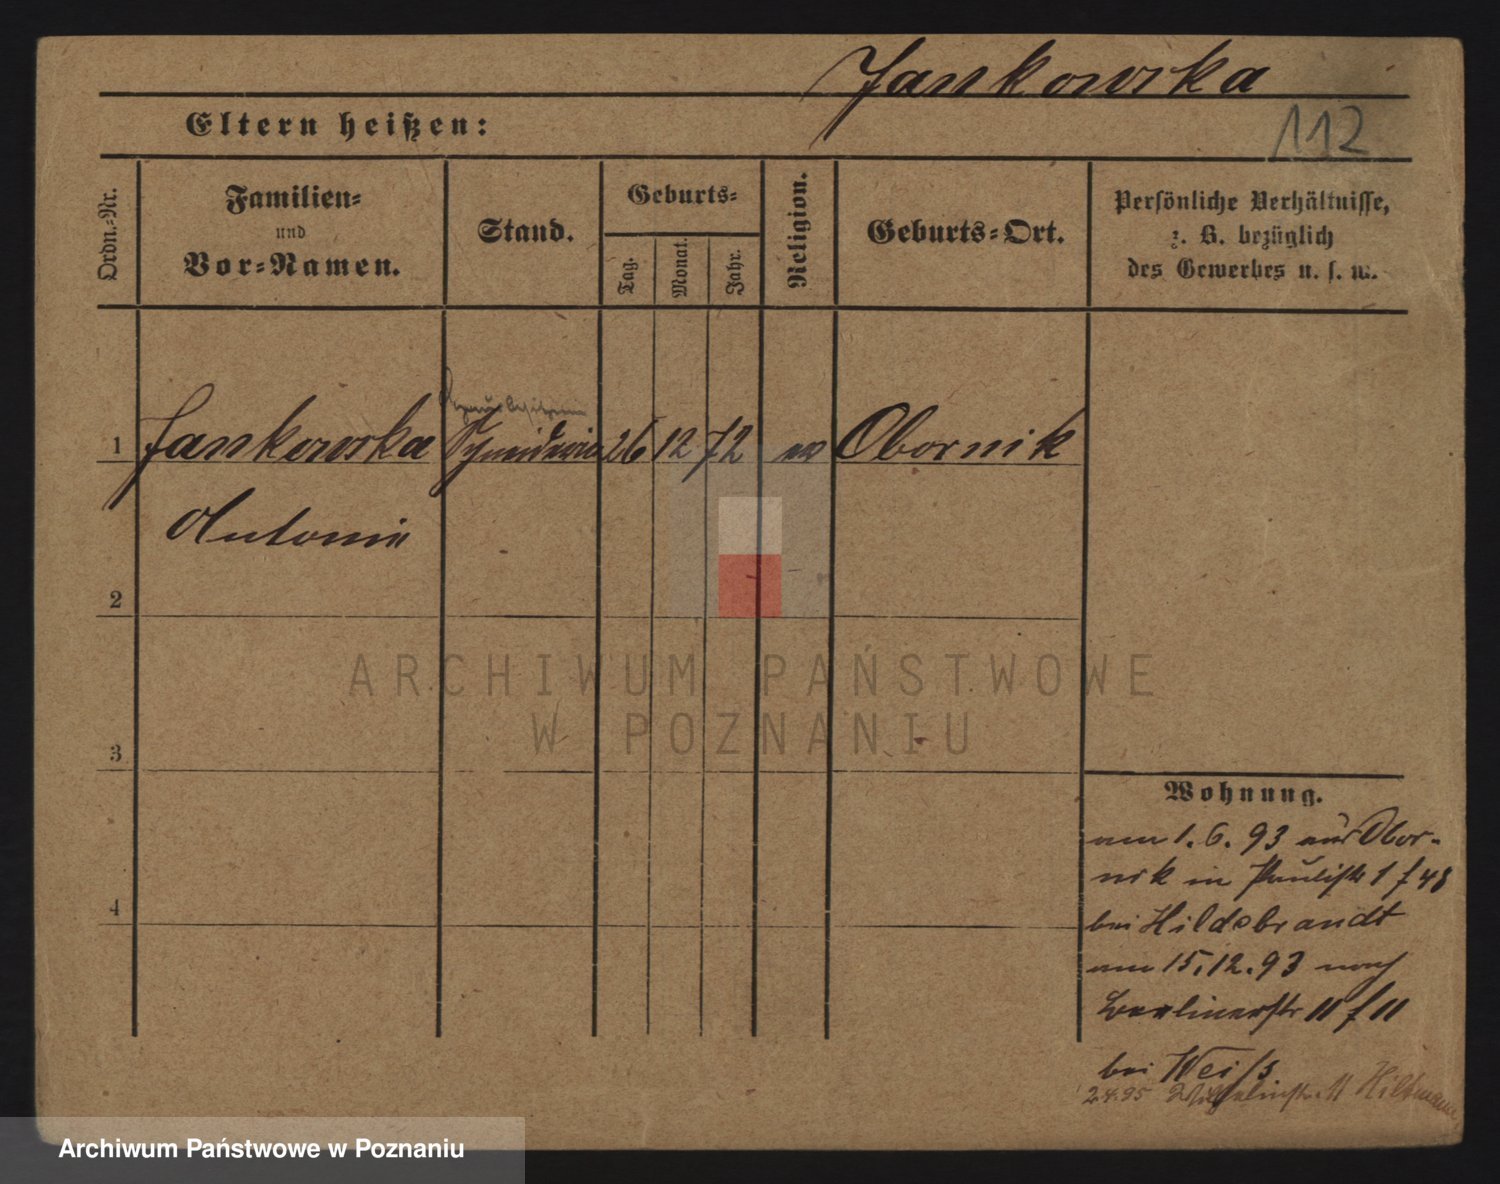 Jankowska
112
Eltern heißen:
Ordn.-Nr.
Familien-
und
Vor-Namen.
Stand.
Geburts-
Tag.
Monat.
Jahr.
Religion.
Geburts-Ort.
Persönliche Verhältnisse,
z. B. bezüglich
des Gewerbes u. s. w.
1 Jankowska Schneiderin 26 12 72 Obornik
Antonie
2
3
4
Wohnung.
am 1. 6. 93 aus Obor-
nik in Paulistr 1
bei Hildebrandt
am 15. 12. 93 nach
Berlinerstr 11
bei Weiss
2.4.95 Wilhelmstr. 11
ARCHIWUM PAŃSTWOWE
W POZNANIU
Archiwum Państwowe w Poznaniu